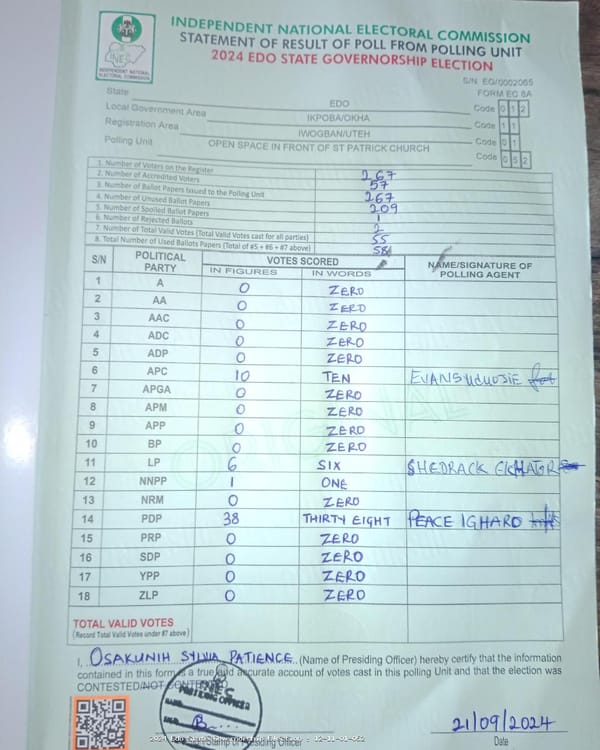 INDEPENDENT NATIONAL ELECTORAL COMMISSION
STATEMENT OF RESULT OF POLL FROM POLLING UNIT
2024 EDO STATE GOVERNORSHIP ELECTION
INEC
INDEPENDENT NATIONAL ELECTORAL COMMISSION
S/N EG/0002065
FORM EC 8A
State EDO Code 0 1 2
Local Government Area IKPOBA/OKHA Code 1 1
Registration Area IWOGBAN/UTEH Code 0 1
Polling Unit OPEN SPACE IN FRONT OF ST PATRICK CHURCH Code 0 5 2
1. Number of Voters on the Register 267
2. Number of Accredited Voters 57
3. Number of Ballot Papers Issued to the Polling Unit 267
4. Number of Unused Ballot Papers 209
5. Number of Spoiled Ballot Papers 1
6. Number of Rejected Ballots 2
7. Number of Total Valid Votes (Total Valid Votes cast for all parties) 55
8. Total Number of Used Ballots Papers (Total of #5 + #6 + #7 above) 58
S/N POLITICAL PARTY VOTES SCORED NAME/SIGNATURE OF POLLING AGENT
IN FIGURES IN WORDS
1 A 0 ZERO
2 AA 0 ZERO
3 AAC 0 ZERO
4 ADC 0 ZERO
5 ADP 0 ZERO
6 APC 10 TEN
7 APGA 0 ZERO
8 APM 0 ZERO
9 APP 0 ZERO
10 BP 0 ZERO
11 LP 6 SIX SHEDRACK
12 NNPP 1 ONE
13 NRM 0 ZERO
14 PDP 38 THIRTY EIGHT PEACE IGHARO
15 PRP 0 ZERO
16 SDP 0 ZERO
17 YPP 0 ZERO
18 ZLP 0 ZERO
ORIGINAL
TOTAL VALID VOTES
(Record Total Valid Votes under #7 above)
I, OSAKUNIH SYLVIA PATIENCE (Name of Presiding Officer) hereby certify that the information
contained in this form is a true and accurate account of votes cast in this polling Unit and that the election was
CONTESTED/NOT CONTESTED
INEC
PRESIDING OFFICER
21/09/2024
Stamp of Presiding Officer
Date